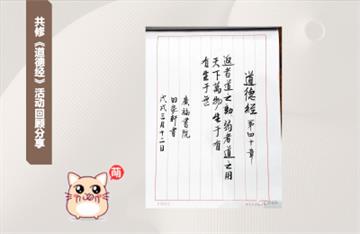 共修《道德经》活动回顾分享
道德經 第四十章
返者道之動弱者道之用
天下萬物生于有
有生于无
廣福書院
田 軒書
戊戌三月十二日
萌